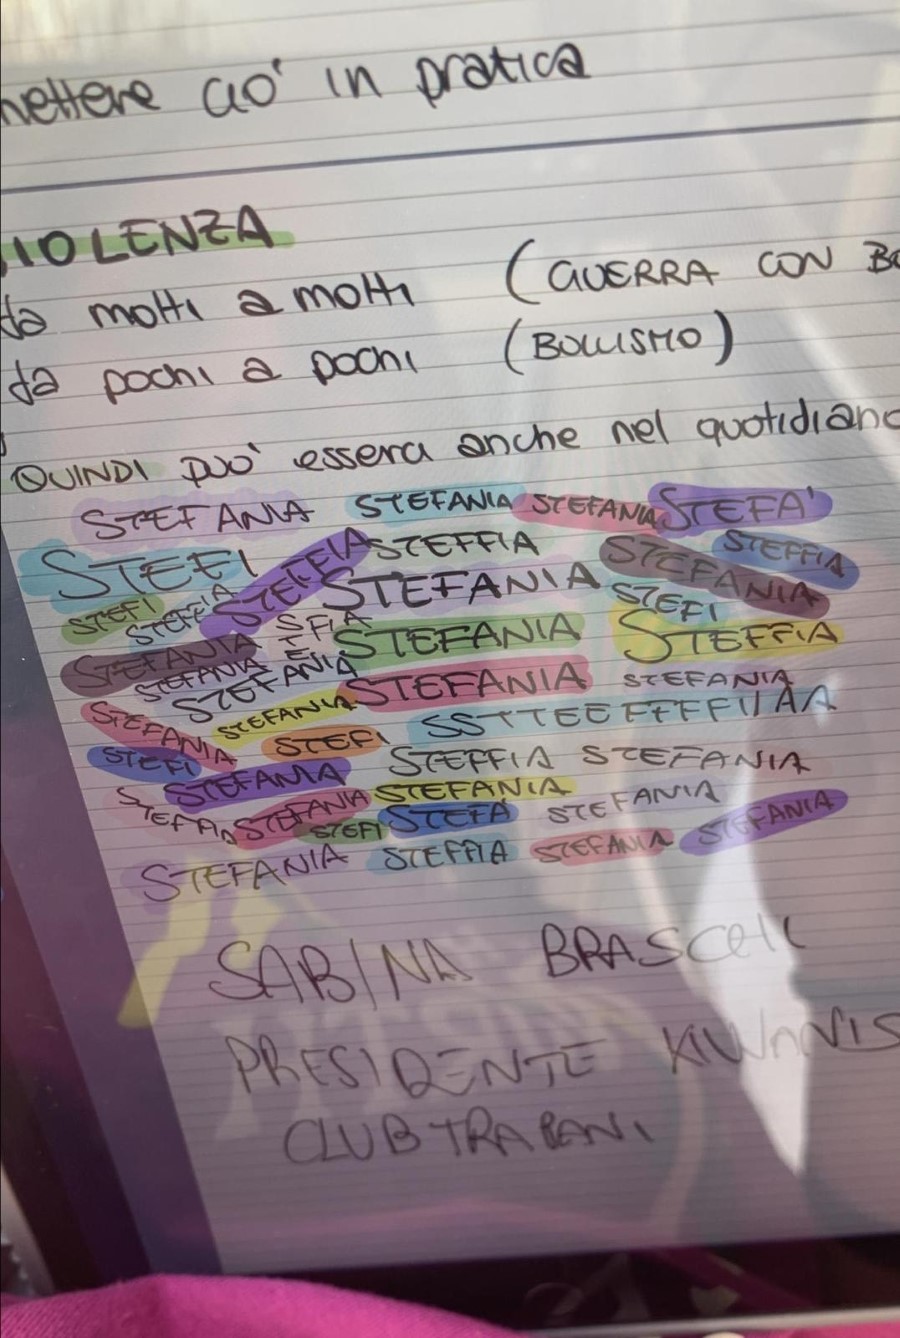 mettere ciò in pratica
VIOLENZA
da molti a molti (GUERRA CON
da pochi a pochi (BULLISMO)
QUINDI può essera anche nel quotidiano
STEFANIA STEFANIA STEFANIA STEFA'
STEFI STEFFIA STEFFIA STEFANIA STEFFIA
STEFI STEFFIA STEFANIA STEFI
STEFANIA STEFANIA STEFFIA
STEFANIA STEFANIA STEFANIA STEFANIA
STEFANIA STEFANIA SSTTEEFFFFIIAA
STEFI STEFI STEFFIA STEFANIA
STEFANIA STEFANIA
STEFFIA STEFANIA STEFI STEFA' STEFANIA STEFANIA
STEFANIA STEFFIA STEFANIA
SABINA BRASCHI
PRESIDENTE KIWANIS
CLUB TRAPANI